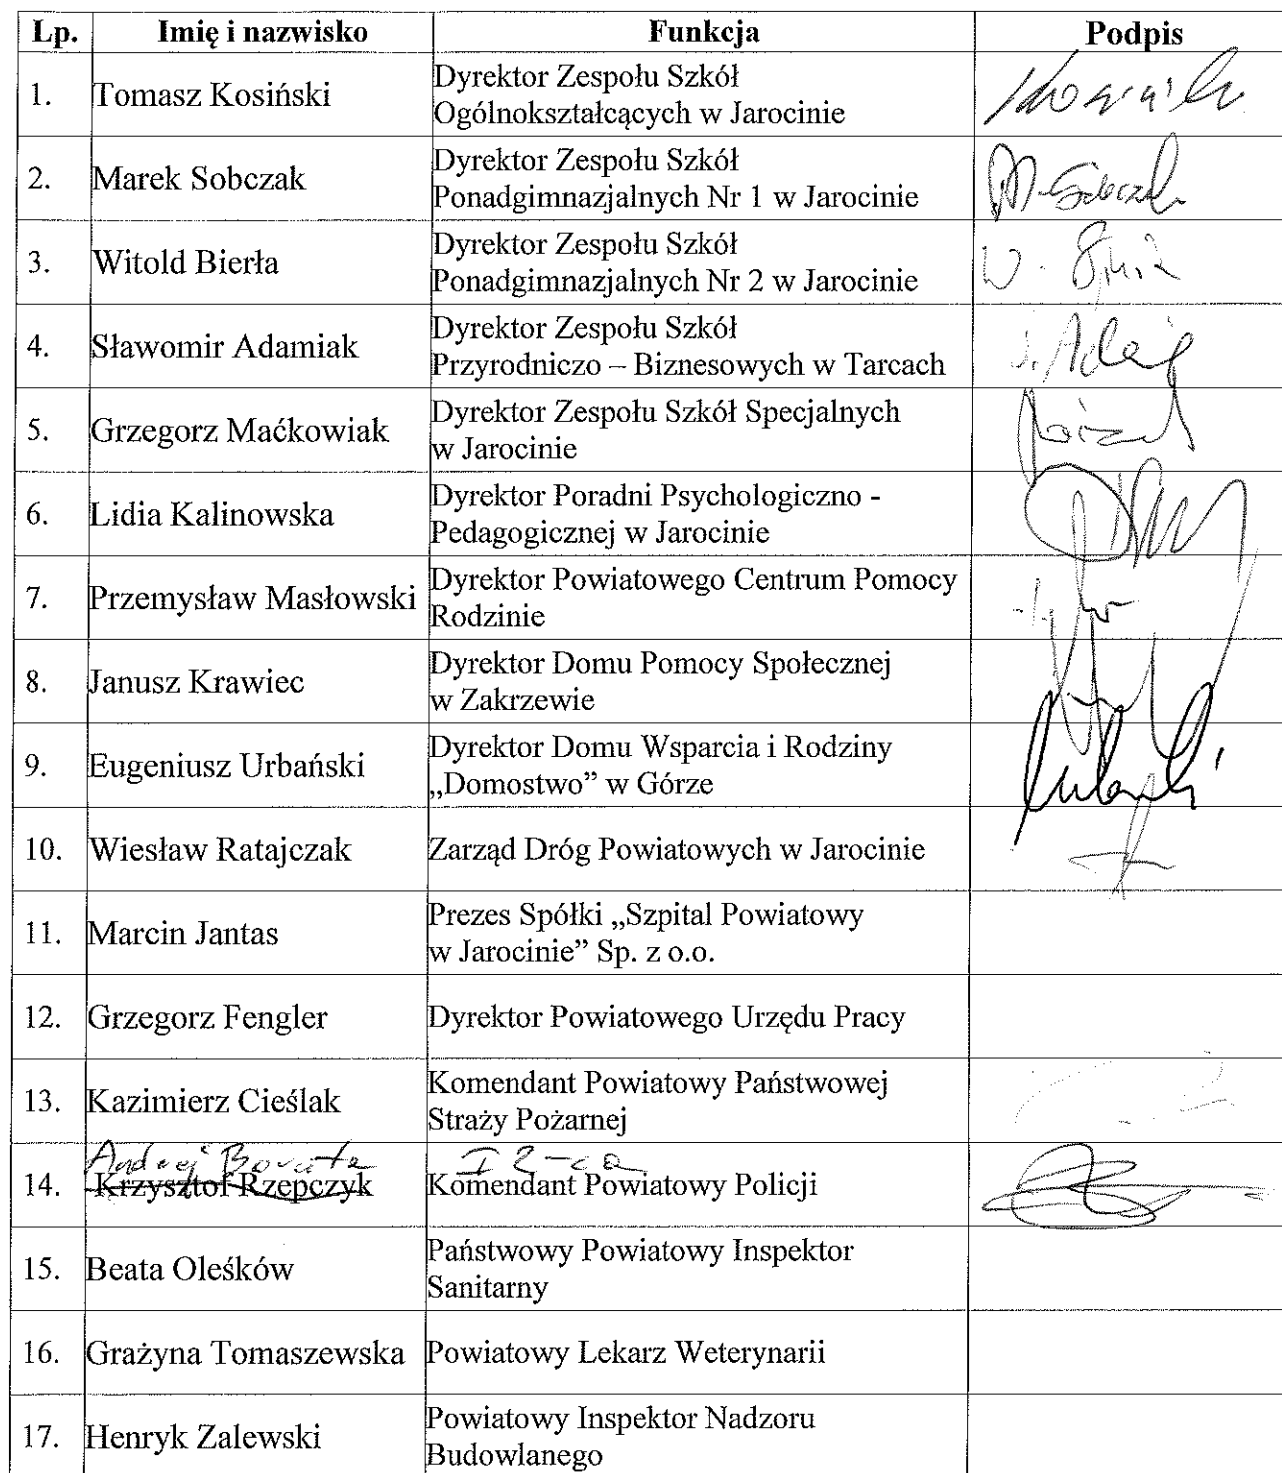 Lp. Imię i nazwisko Funkcja Podpis
1. Tomasz Kosiński Dyrektor Zespołu Szkół
Ogólnokształcących w Jarocinie
2. Marek Sobczak Dyrektor Zespołu Szkół
Ponadgimnazjalnych Nr 1 w Jarocinie
3. Witold Bierła Dyrektor Zespołu Szkół
Ponadgimnazjalnych Nr 2 w Jarocinie
4. Sławomir Adamiak Dyrektor Zespołu Szkół
Przyrodniczo – Biznesowych w Tarcach
5. Grzegorz Maćkowiak Dyrektor Zespołu Szkół Specjalnych
w Jarocinie
6. Lidia Kalinowska Dyrektor Poradni Psychologiczno -
Pedagogicznej w Jarocinie
7. Przemysław Masłowski Dyrektor Powiatowego Centrum Pomocy
Rodzinie
8. Janusz Krawiec Dyrektor Domu Pomocy Społecznej
w Zakrzewie
9. Eugeniusz Urbański Dyrektor Domu Wsparcia i Rodziny
„Domostwo” w Górze
10. Wiesław Ratajczak Zarząd Dróg Powiatowych w Jarocinie
11. Marcin Jantas Prezes Spółki „Szpital Powiatowy
w Jarocinie” Sp. z o.o.
12. Grzegorz Fengler Dyrektor Powiatowego Urzędu Pracy
13. Kazimierz Cieślak Komendant Powiatowy Państwowej
Straży Pożarnej
I Z-ca
14. Krzysztof Rzepczyk Komendant Powiatowy Policji
15. Beata Oleśków Państwowy Powiatowy Inspektor
Sanitarny
16. Grażyna Tomaszewska Powiatowy Lekarz Weterynarii
17. Henryk Zalewski Powiatowy Inspektor Nadzoru
Budowlanego